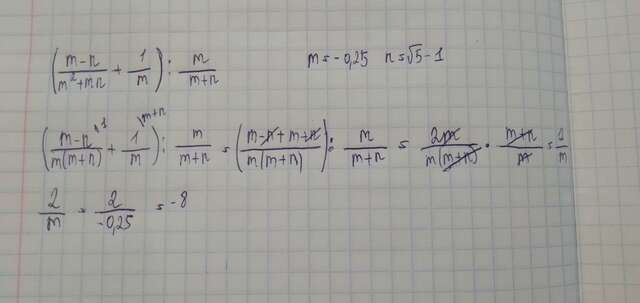 (m-n/m²+mn + 1/m) : m/m+n    m=-0,25  n=√5-1
(m-n\1/m(m+n) + 1\m+n/m) : m/m+n = (m-n+m+n/m(m+n)) : m/m+n = 2m/m(m+n) · m+n/m = 1/m
2/m = 2/-0,25 = -8